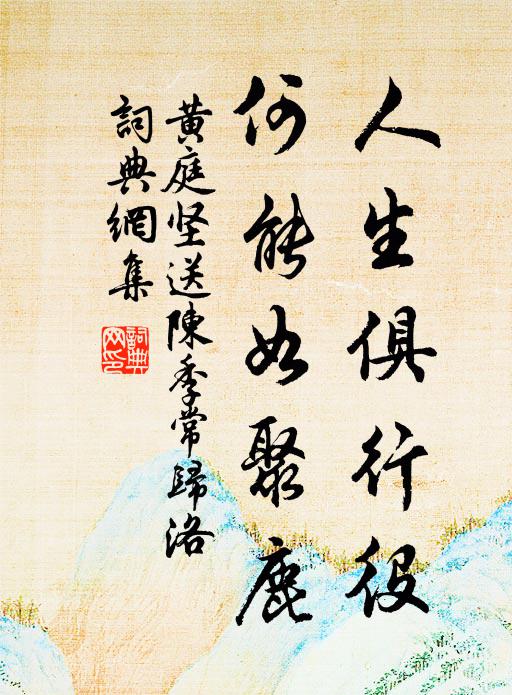 人生俱行役
何能如聚鹿
黄庭坚送陳季常歸洛
詞典網集
詞典网印